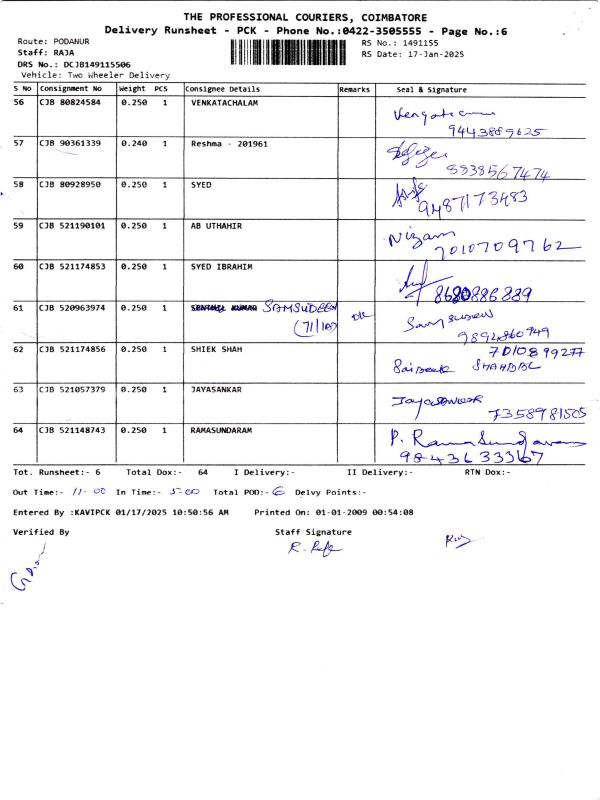 THE PROFESSIONAL COURIERS, COIMBATORE
Delivery Runsheet - PCK - Phone No.:0422-3505555 - Page No.:6
Route: PODANUR RS No.: 1491155
Staff: RAJA RS Date: 17-Jan-2025
DRS No.: DCJB149115506
Vehicle: Two Wheeler Delivery
S No Consignment No Weight PCS Consignee Details Remarks Seal & Signature
56 CJB 80824584 0.250 1 VENKATACHALAM
9443889625
57 CJB 90361339 0.240 1 Reshma - 201961
8838567474
58 CJB 80928950 0.250 1 SYED
9487173483
59 CJB 521190101 0.250 1 AB UTHAHIR Nizam
7010709762
60 CJB 521174853 0.250 1 SYED IBRAHIM
8680886889
61 CJB 520963974 0.250 1 SENTHIL KUMAR SAMSUDEEN
(71/10)
9894860949
62 CJB 521174856 0.250 1 SHIEK SHAH 7010899277
63 CJB 521057379 0.250 1 JAYASANKAR
7358981505
64 CJB 521148743 0.250 1 RAMASUNDARAM P. Ramasundaram
9843633367
Tot. Runsheet:- 6 Total Dox:- 64 I Delivery:- II Delivery:- RTN Dox:-
Out Time:- 11-00 In Time:- 5-00 Total POD:- 6 Delvy Points:-
Entered By :KAVIPCK 01/17/2025 10:50:56 AM Printed On: 01-01-2009 00:54:08
Verified By Staff Signature